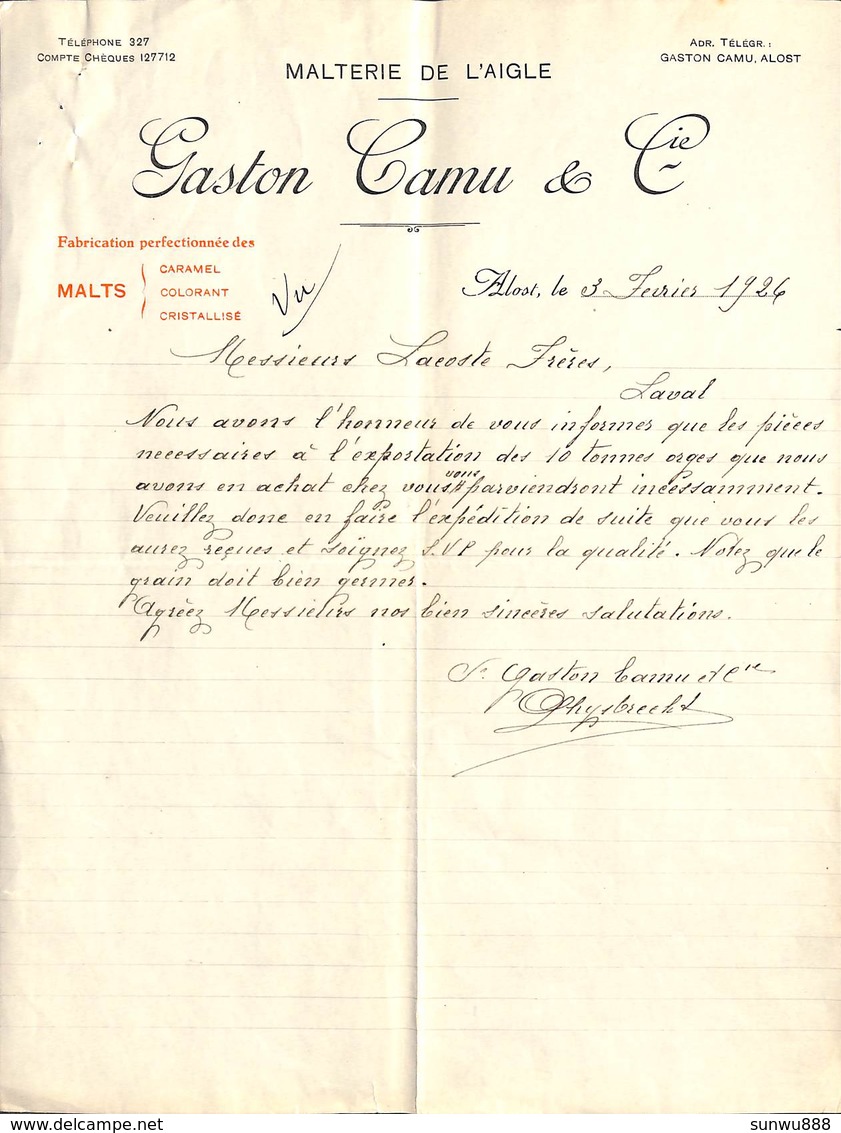 TÉLÉPHONE 327
COMPTE CHÈQUES 127712
ADR. TÉLÉGR.:
GASTON CAMU, ALOST
MALTERIE DE L'AIGLE
Gaston Camu & Cie
Fabrication perfectionnée des
MALTS
CARAMEL
COLORANT
CRISTALLISÉ
Vu
Alost, le 3 Fevrier 1926
Messieurs Lacoste Frères,
Laval
Nous avons l'honneur de vous informer que les pièces
necessaires à l'exportation des 10 tonnes orges que nous
avons en achat chez vous vous parviendront incessamment.
Veuillez donc en faire l'expédition de suite que vous les
aurez reçues et soignez S.V.P pour la qualité. Notez que le
grain doit bien germer.
Agréez Messieurs nos bien sincères salutations.
Gaston Camu et Cie
Ghysbrecht
sunwu888